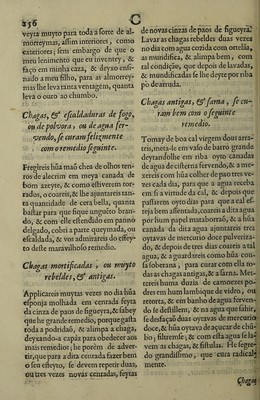 256
C
veyta muyto para toda a sorte de al-
morreymas, assim interiores, como
exteriores; sem embargo de que o
meu lenimento que eu inventey, &
faço em minha caza, & deyxo ensi-
nado a meu filho, para as almorrey-
mas lhe leva tanta ventagem, quanta
leva o ouro ao chumbo.
Chagas, & esfaldaduras de fogo,
ou de polvora, ou de agua fer-
vendo, se curam felizmente
com o remedio seguinte.
Fregireis hũa maõ chea de olhos ten-
ros de alecrim em meya canada de
bom azeyte, & como estiverem tor-
rados, o coareis, & lhe ajuntareis tan-
ta quantidade de cera bella, quanta
bastar para que fique unguẽto bran-
do, & com elle estendido em panno
delgado, cobri a parte queymada, ou
escaldada, & vos admirareis do effey-
to deste maravilhoso remedio.
Chagas mortificadas, ou muyto
rebeldes, & antigas.
Applicareis muytas vezes no dia hũa
esponja molhada em cenrada feyta
da cinza de paos de figueyra, & sabey
que he grande remedio, porque gasta
toda a podridaõ, & alimpa a chaga,
deyxando-a capàz para obedecer aos
mais remedios; he porèm de adver-
tir, que para a dita cenrada fazer bem
o seu effeyto, se devem repetir duas,
ou tres vezes novas cenradas, feytas
de novas cinzas de paos de figueyra.
Lavar as chagas rebeldes duas vezes
no dia com agua cozida com ortelãa,
as mundifica, & alimpa bem, com
tal condiçaõ, que depois de lavadas,
& mundificadas se lhe deyte por riba
pò de arruda.
Chagas antigas, & sarna, se cu-
ram bem com o seguinte
remedio.
Tomay de boa cal virgem dous arra-
teis, metei-le em vaso de barro grande
deytandolhe em riba oyto canadas
de agua de cisterna fervendo, & a me-
xereis com hũa colher de pao tres ve-
zes cada dia, para que a agua receba
em si a virtude da cal, & depois que
passarem oyto dias para que a cal es-
teja bem assentada, coareis a dita agua
por hum papel mataborraõ, & a hũa
canada da dita agua ajuntareis tres
oytavas de mercurio doce pulveriza-
do, & depois de tres dias coareis a tal
agua, & a guardareis como hũa cou-
sa soberana, para curar com ella to-
das as chagas antigas, & a sarna. Me-
tereis huma duzia de camoezes po-
dres em hum lambique de vidro, ou
retorta, & em banho de agua ferven-
do se destillem, & na agua que sahir,
se desfaçaõ duas oytavas de mercurio
doce, & hũa oytava de açucar de chũ-
bo; filtrem-se, & com esta agua se la-
vem as chagas, & fistulas. He segre-
do grandissimo, que cura radical-
mente.
Chagas